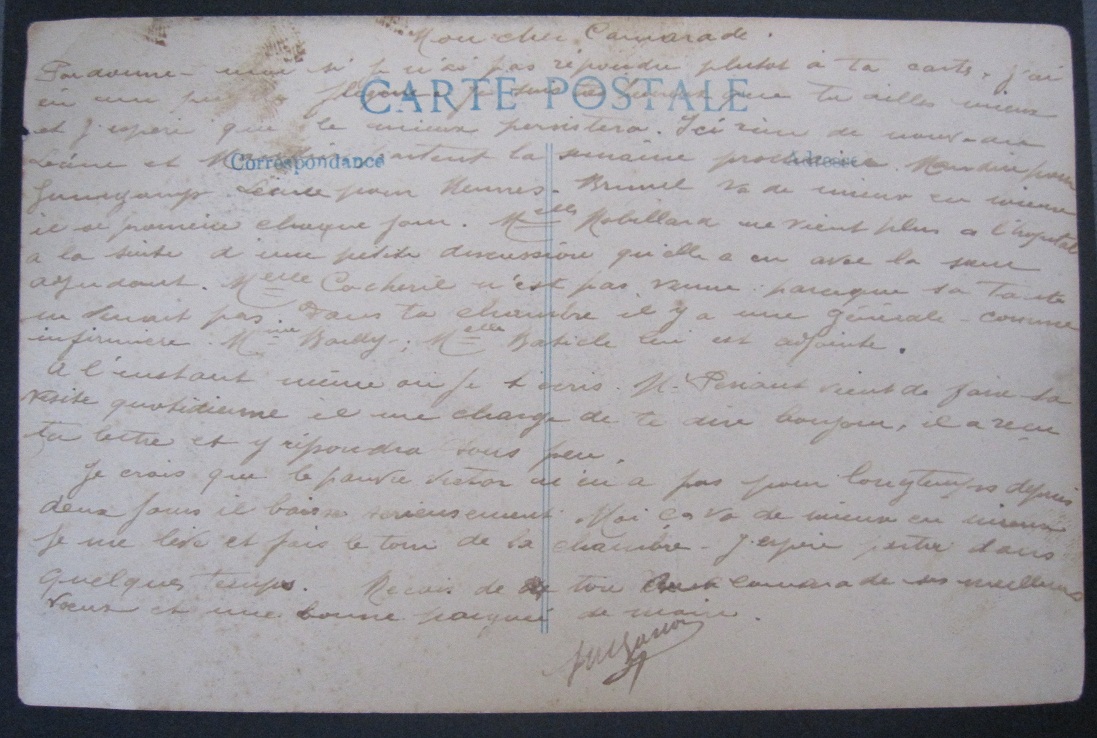 Mon cher Camarade.
Pardonne-moi si je n'ai pas répondu plutot à ta carte, j'ai
eu une CARTE POSTALE je suis que tu ailles mieux
et j'espere que le mieux persistera. Ici rien de nouveau
et Correspondance partent la semaine prochaine Adresse pour
Guingamp pour Rennes. Brunel va de mieux en mieux
il se promène chaque jour. Melle Robillard ne vient plus a l'hopital
a la suite d'une petite discussion qu'elle a eu avec la sœur
adjudant. Melle Cacheril n'est pas venue parceque sa tante
ne venait pas. Dans ta chambre il y a une générale comme
infirmière. Mme Bailly, Melle lui est adjointe.
A l'instant même ou je t'ecris Mr vient de faire sa
visite quotidienne il me charge de te dire bonjour, il a reçu
ta lettre et y répondra sous peu.
Je crois que le pauvre Victor n'en a pas pour longtemps depuis
deux jours il baisse serieusement. Moi ça va de mieux en mieux
Je me lève et fais le tour de la chambre - J'espere partir dans
quelques temps. Recois de ton camarade ses meilleurs
vœux et une bonne poignée de main.